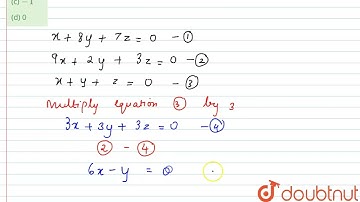 (c) – 1
(d) 0
x + 8y + 7z = 0 – ①
9x + 2y + 3z = 0 – ②
x + y + z = 0 – ③
Multiply equation ③ by 3
3x + 3y + 3z = 0 – ④
② – ④
6x – y = 0
doubtnut